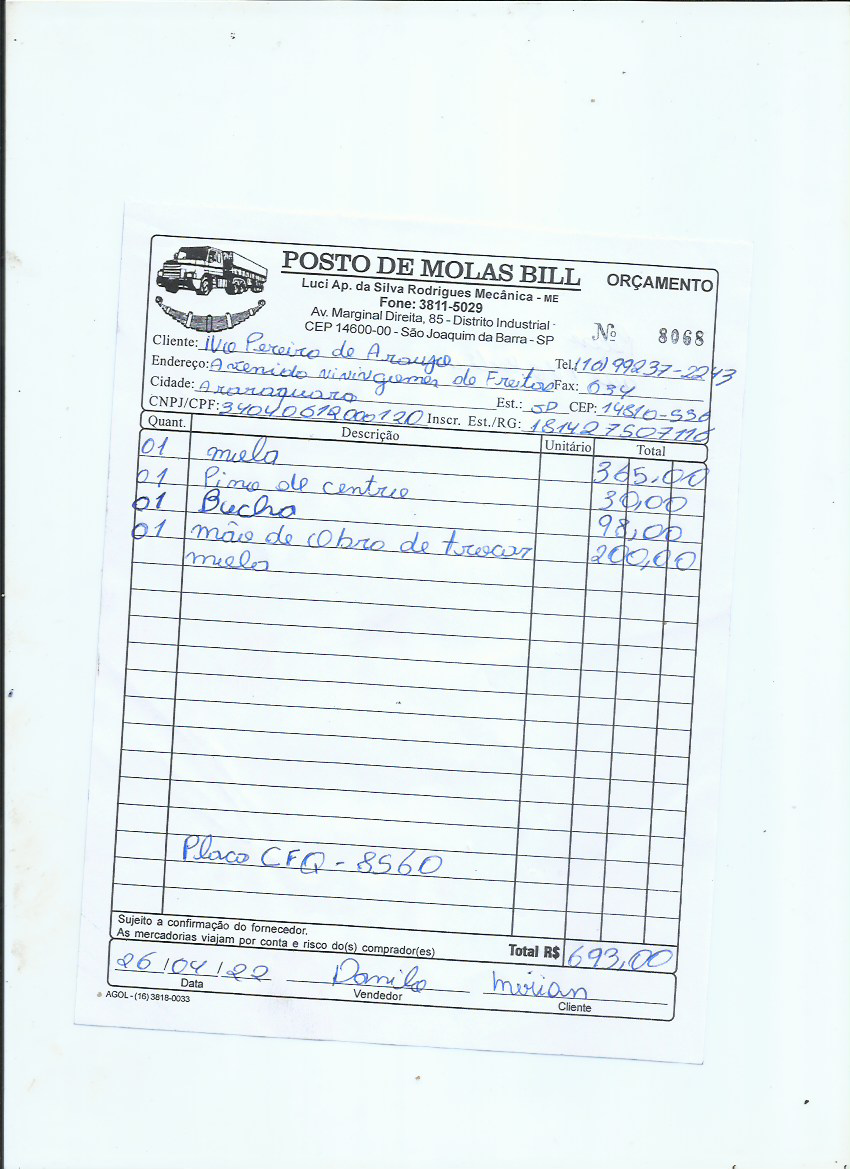 POSTO DE MOLAS BILL ORÇAMENTO
Luci Ap. da Silva Rodrigues Mecânica - ME
Fone: 3811-5029
Av. Marginal Direita, 85 - Distrito Industrial -
CEP 14600-00 - São Joaquim da Barra - SP
Nº 8068
Cliente: Pereira de Araujo
Tel.: 99237-2243
Endereço: Avenida gomes de Freitas Fax: 634
Cidade: Araraquara Est.: SP CEP: 14810-536
CNPJ/CPF: 34040612000120 Inscr. Est./RG: 181427507116
Quant. Descrição Unitário Total
01 mola 365,00
01 Pino de centro 30,00
01 Bucha 98,00
01 mão de Obra de trocar 200,00
molas
Placa CFQ - 8560
Sujeito a confirmação do fornecedor.
As mercadorias viajam por conta e risco do(s) comprador(es)
Total R$ 693,00
26/04/22 Danilo Mirian
Data Vendedor Cliente
AGOL - (16) 3818-0033